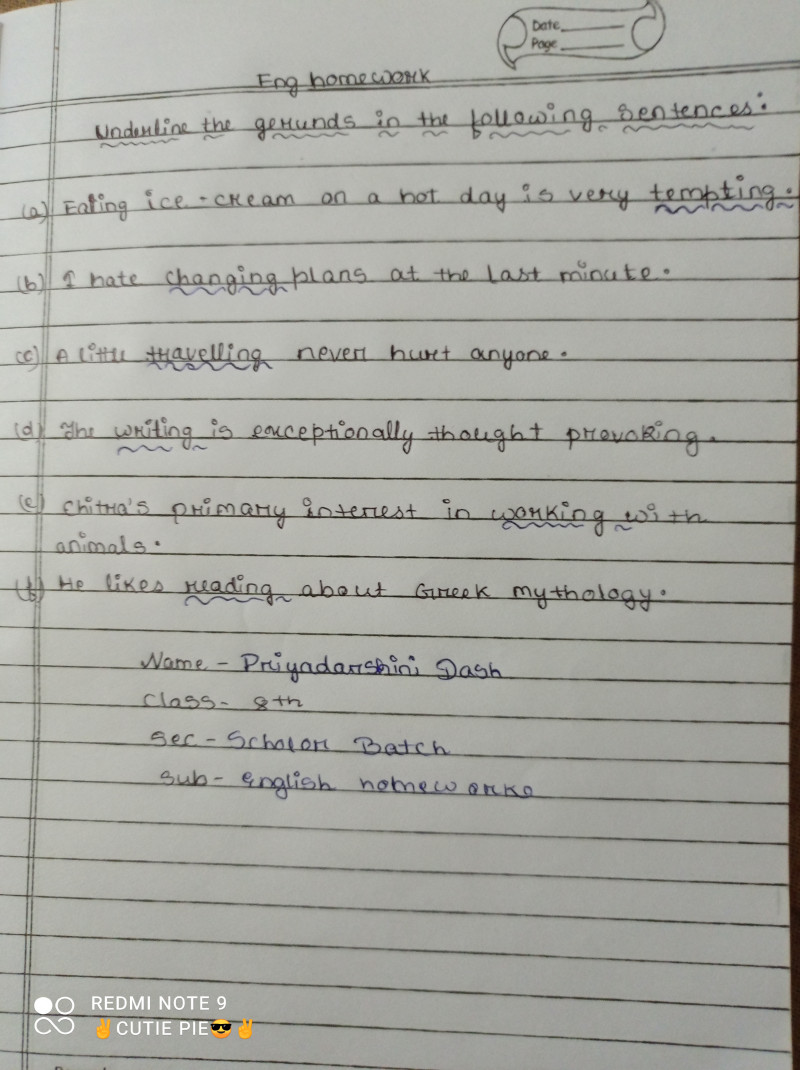 Date
Page
Eng homework
Underline the gerunds in the following sentences:
(a) Eating ice-cream on a hot day is very tempting.
(b) I hate changing plans at the last minute.
(c) A little travelling never hurt anyone.
(d) The writing is exceptionally thought provoking.
(e) Chitra's primary interest in working with
animals.
(f) He likes reading about Greek mythology.
Name - Priyadarshini Dash
Class - 8th
Sec - Scholar Batch
Sub - English homework
REDMI NOTE 9
✌CUTIE PIE😎✌